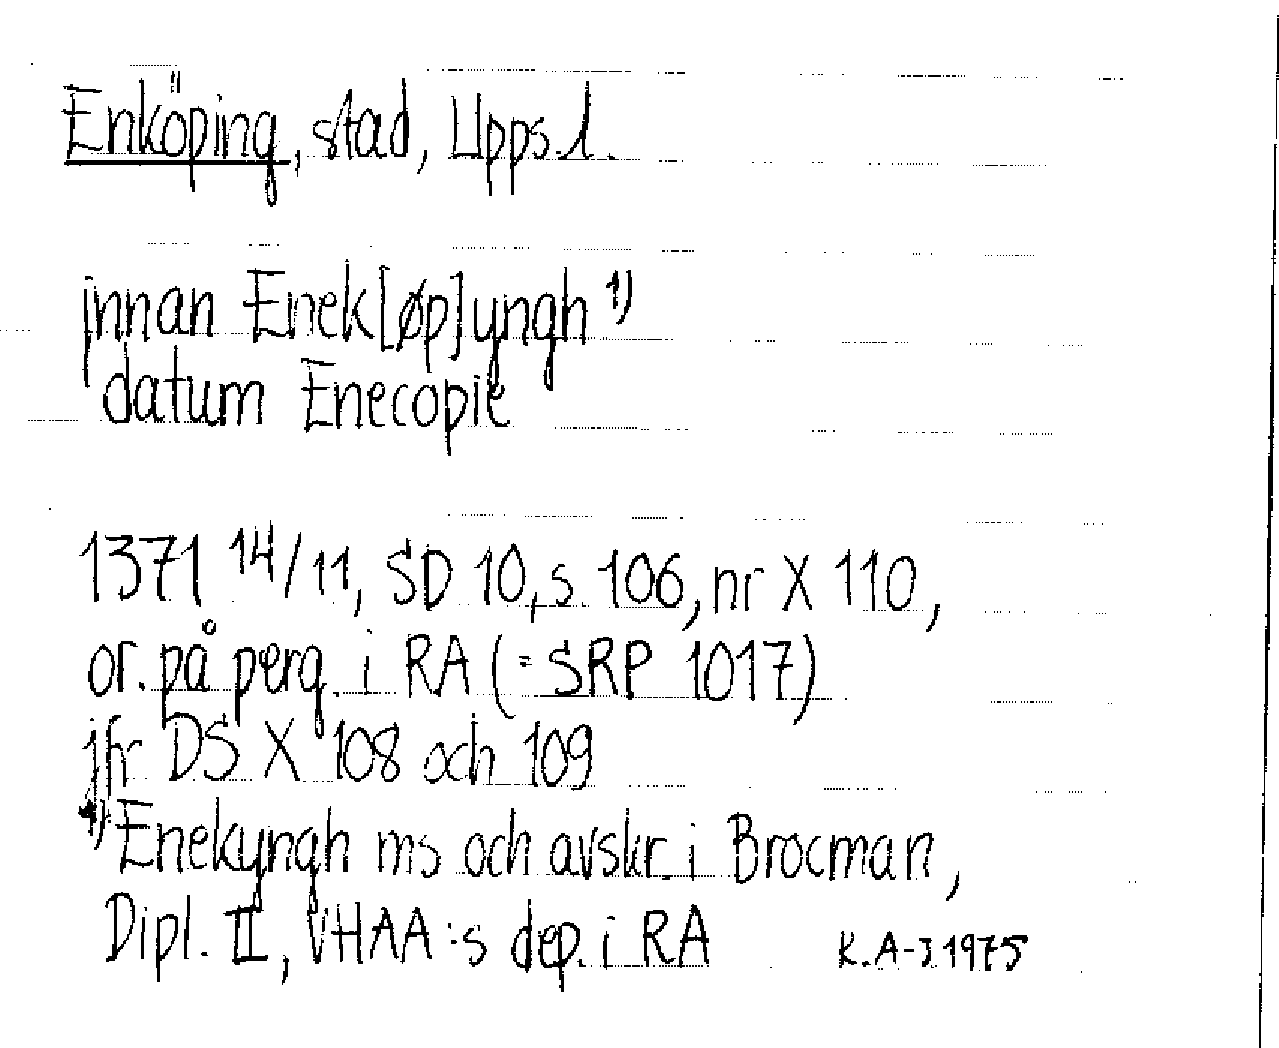 Enköping, stad, Upps.l.
jnnan Enek[øp]yngh 1)
datum Enecopie
1371 14/11, SD 10, s 106, nr X 110,
or. på perg. i RA (= SRP 1017)
jfr DS X 108 och 109
1) Enekyngh ms och avskr. i Brocman,
Dipl. II, VHAA:s dep. i RA
K.A-J 1975